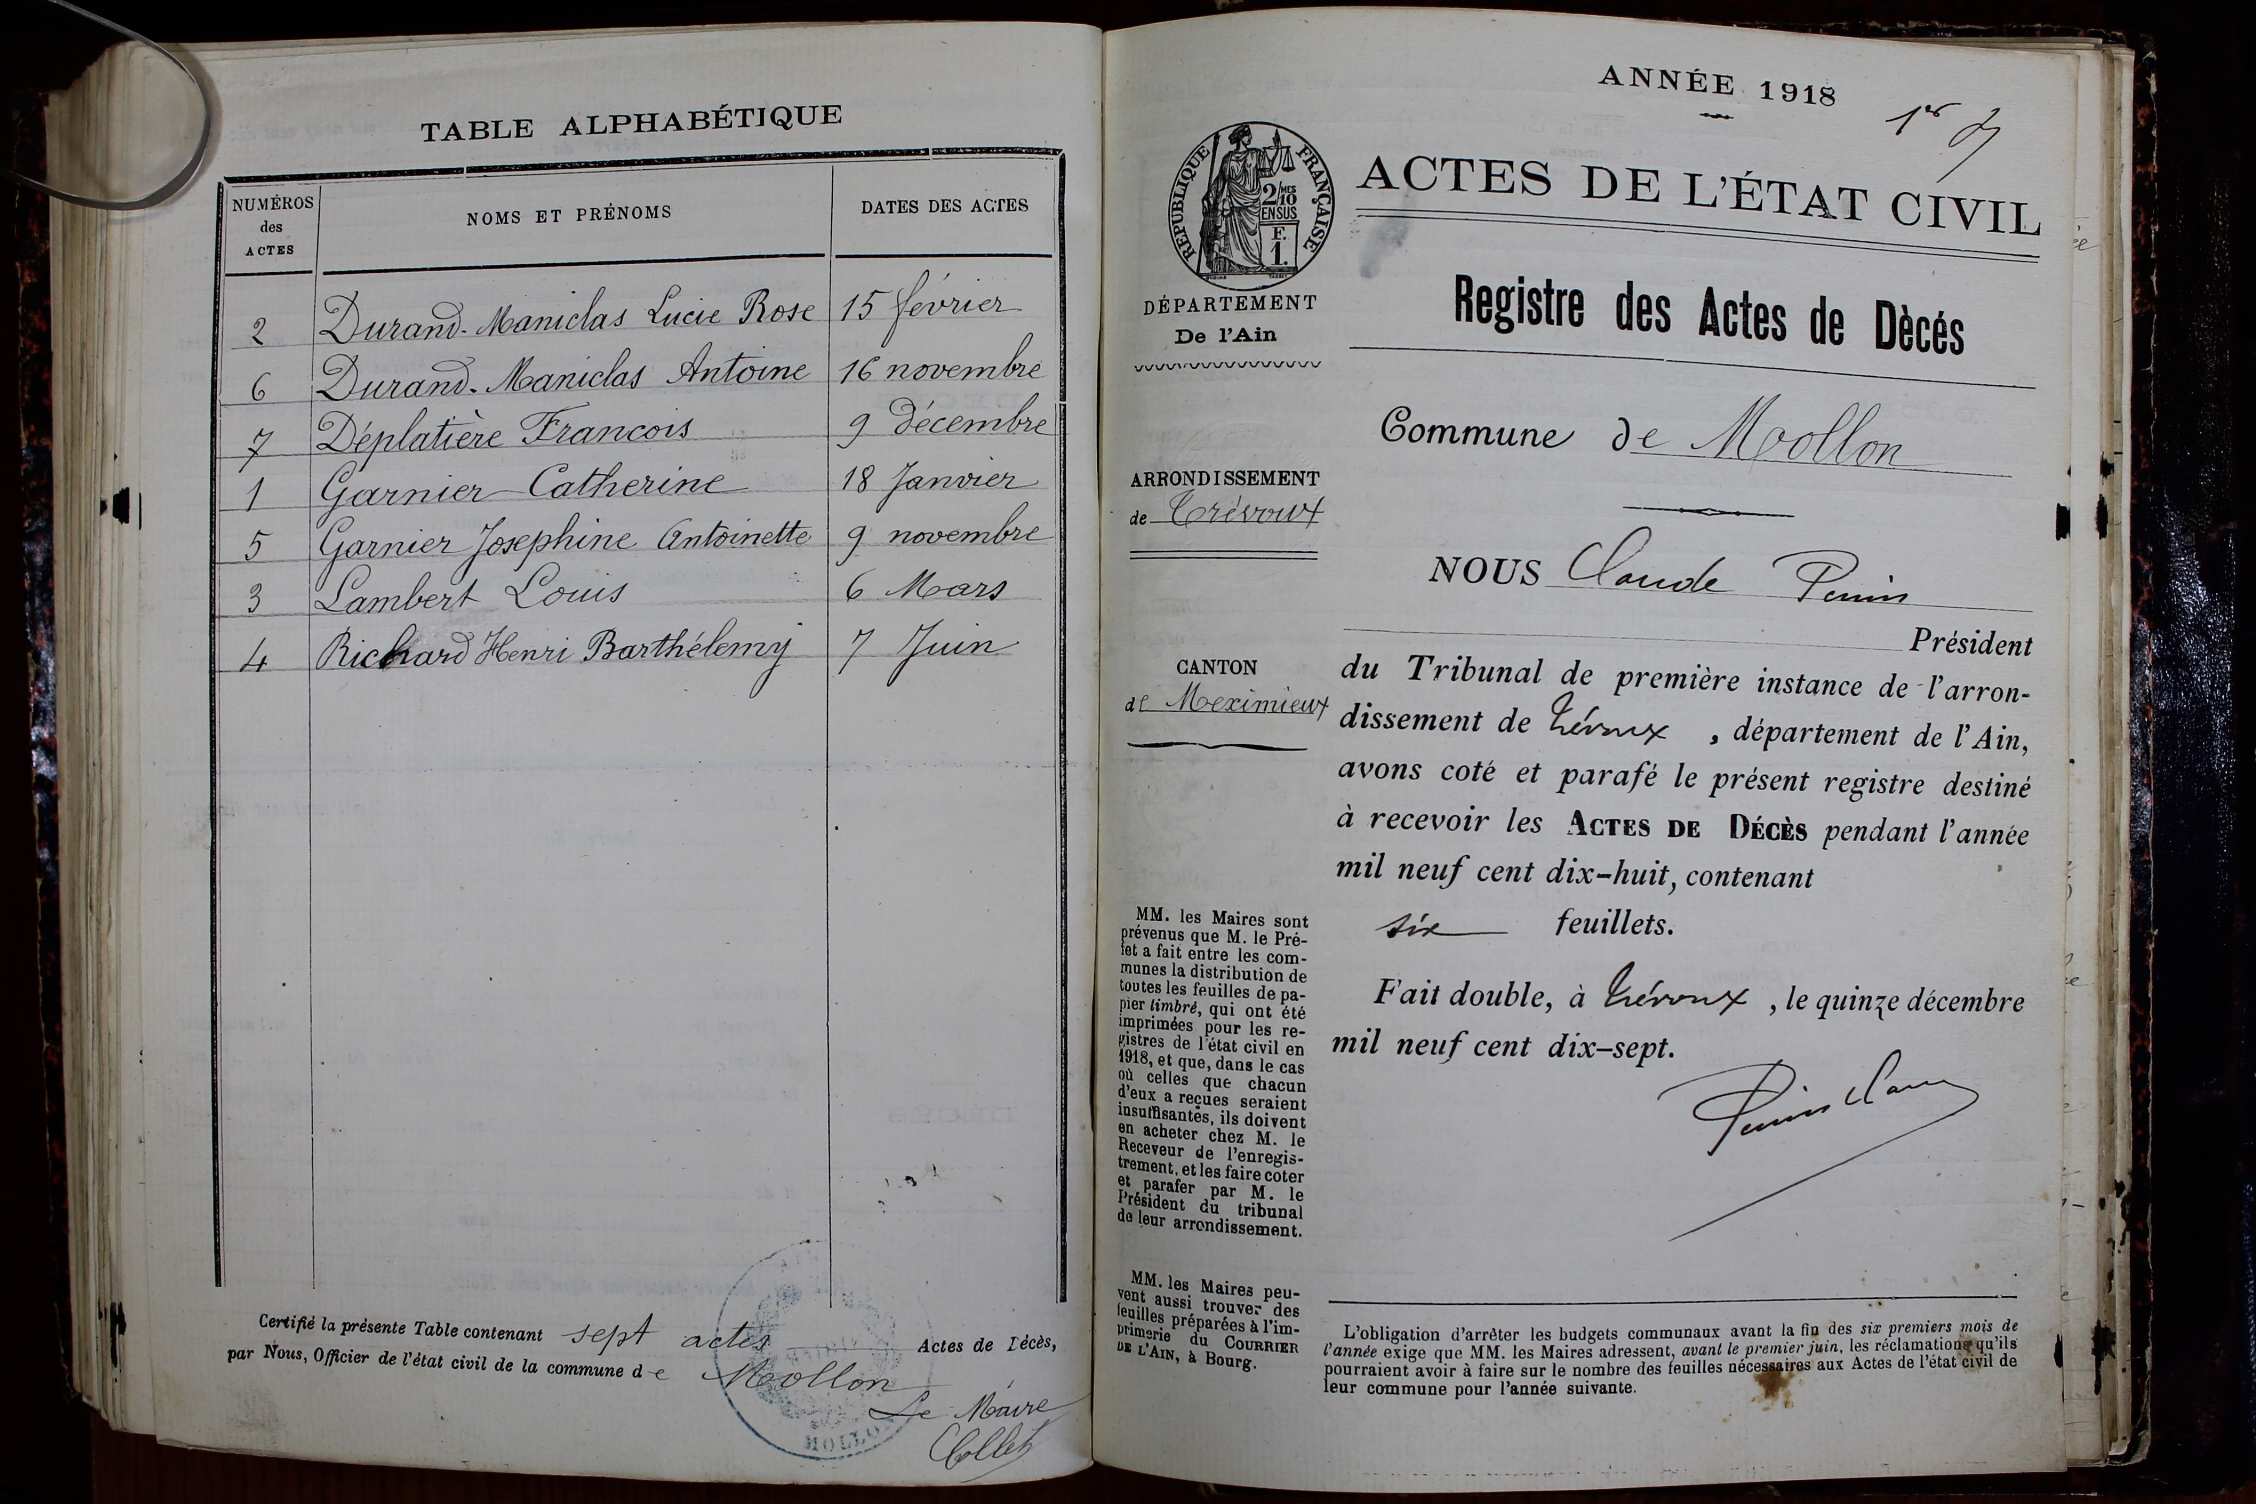 TABLE ALPHABÉTIQUE
NUMÉROS des ACTES NOMS ET PRÉNOMS DATES DES ACTES
2 Durand-Maniclas Lucie Rose 15 février
6 Durand-Maniclas Antoine 16 novembre
7 Déplatière Francois 9 décembre
1 Garnier Catherine 18 Janvier
5 Garnier Josephine Antoinette 9 novembre
3 Lambert Louis 6 Mars
4 Richard Henri Barthélemy 7 Juin
Certifié la présente Table contenant sept actes Actes de Décès,
par Nous, Officier de l'état civil de la commune de Mollon
Le Maire
MOLLON
ANNÉE 1918
1er
RÉPUBLIQUE FRANÇAISE
2/10 MES
EN SUS
F.
1.
DÉPARTEMENT
De l'Ain
ARRONDISSEMENT
de Trévoux
CANTON
de Meximieux
MM. les Maires sont
prévenus que M. le Pré-
fet a fait entre les com-
munes la distribution de
toutes les feuilles de pa-
pier timbré, qui ont été
imprimées pour les re-
gistres de l'état civil en
1918, et que, dans le cas
où celles que chacun
d'eux a reçues seraient
insuffisantes, ils doivent
en acheter chez M. le
Receveur de l'enregis-
trement, et les faire coter
et parafer par M. le
Président du tribunal
de leur arrondissement.
MM. les Maires peu-
vent aussi trouver des
feuilles préparées à l'im-
primerie du COURRIER
DE L'AIN, à Bourg.
ACTES DE L'ÉTAT CIVIL
Registre des Actes de Dècés
Commune de Mollon
NOUS Claude Perrin
Président
du Tribunal de première instance de l'arron-
dissement de Trévoux, département de l'Ain,
avons coté et parafé le présent registre destiné
à recevoir les ACTES DE DÉCÈS pendant l'année
mil neuf cent dix-huit, contenant
six feuillets.
Fait double, à Trévoux, le quinze décembre
mil neuf cent dix-sept.
L'obligation d'arrêter les budgets communaux avant la fin des six premiers mois de
l'année exige que MM. les Maires adressent, avant le premier juin, les réclamations qu'ils
pourraient avoir à faire sur le nombre des feuilles nécessaires aux Actes de l'état civil de
leur commune pour l'année suivante.